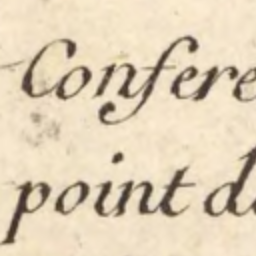 Confere
point d